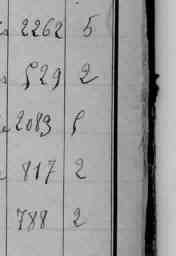 2262 5
529 2
2089 5
817 2
788 2